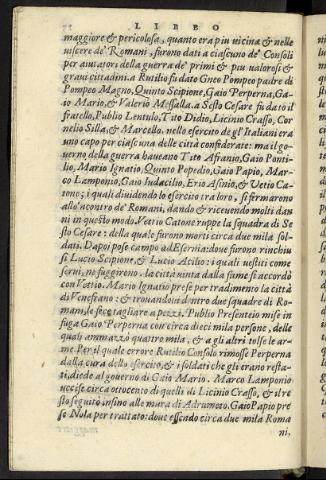 LIBRO
maggiore & pericolosa, quanto era piu uicina & nelle
uiscere de' Romani, furono dati a ciascuno de' Consoli
per aiutatori della guerra de' primi & piu ualorosi &
graui cittadini. a Rutilio fu dato Gneo Pompeo padre di
Pompeo Magno, Quinto Scipione, Gaio Perperna, Ga-
io Mario, & Valerio Messalla. a Sesto Cesare fu dato il
fratello, Publio Lentulo, Tito Didio, Licinio Crasso, Cor
nelio Silla, & Marcello. nello esercito de gl'Italiani era
uno capo per ciascuna delle città confiderate: ma il go-
uerno della guerra haueano Tito Afranio, Gaio Ponti-
lio, Mario Ignatio, Quinto Popedio, Gaio Papio, Mar-
co Lamponio, Gaio Iudacilio, Erio Asinio, & Vetio Ca-
tone; i quali diuidendo lo esercito tra loro, si fermarono
allo'ncontro de' Romani, dando & riceuendo molti dan
ni in questo modo. Vetio Catone ruppe la squadra di Se
sto Cesare: della quale furono morti circa due mila sol-
dati. Dapoi pose campo ad Esernia: doue furono rinchiu
si Lucio Scipione, & Lucio Acilio: i quali uestiti come
serui, ne fuggirono. la città uinta dalla fame si accordò
con Vetio. Mario Ignatio prese per tradimento la città
di Venefrano: & trouandoui dentro due squadre di Ro-
mani, le fece tagliare a pezzi. Publio Presenteio mise in
fuga Gaio Perperna con circa dieci mila persone, delle
quali ammazzò quattro mila, & a gli altri tolse le ar-
me. Per il quale errore Rutilio Consolo rimosse Perperna
dalla cura dello esercito, & i soldati che gli erano resta-
ti, diede al gouerno di Gaio Mario. Marco Lamponio
uccise circa ottocento di quelli di Licinio Crasso, & il re
sto seguitò insino alle mura di Adrumeto. Gaio Papio pre
se Nola per trattato: doue essendo circa due mila Roma
ni,